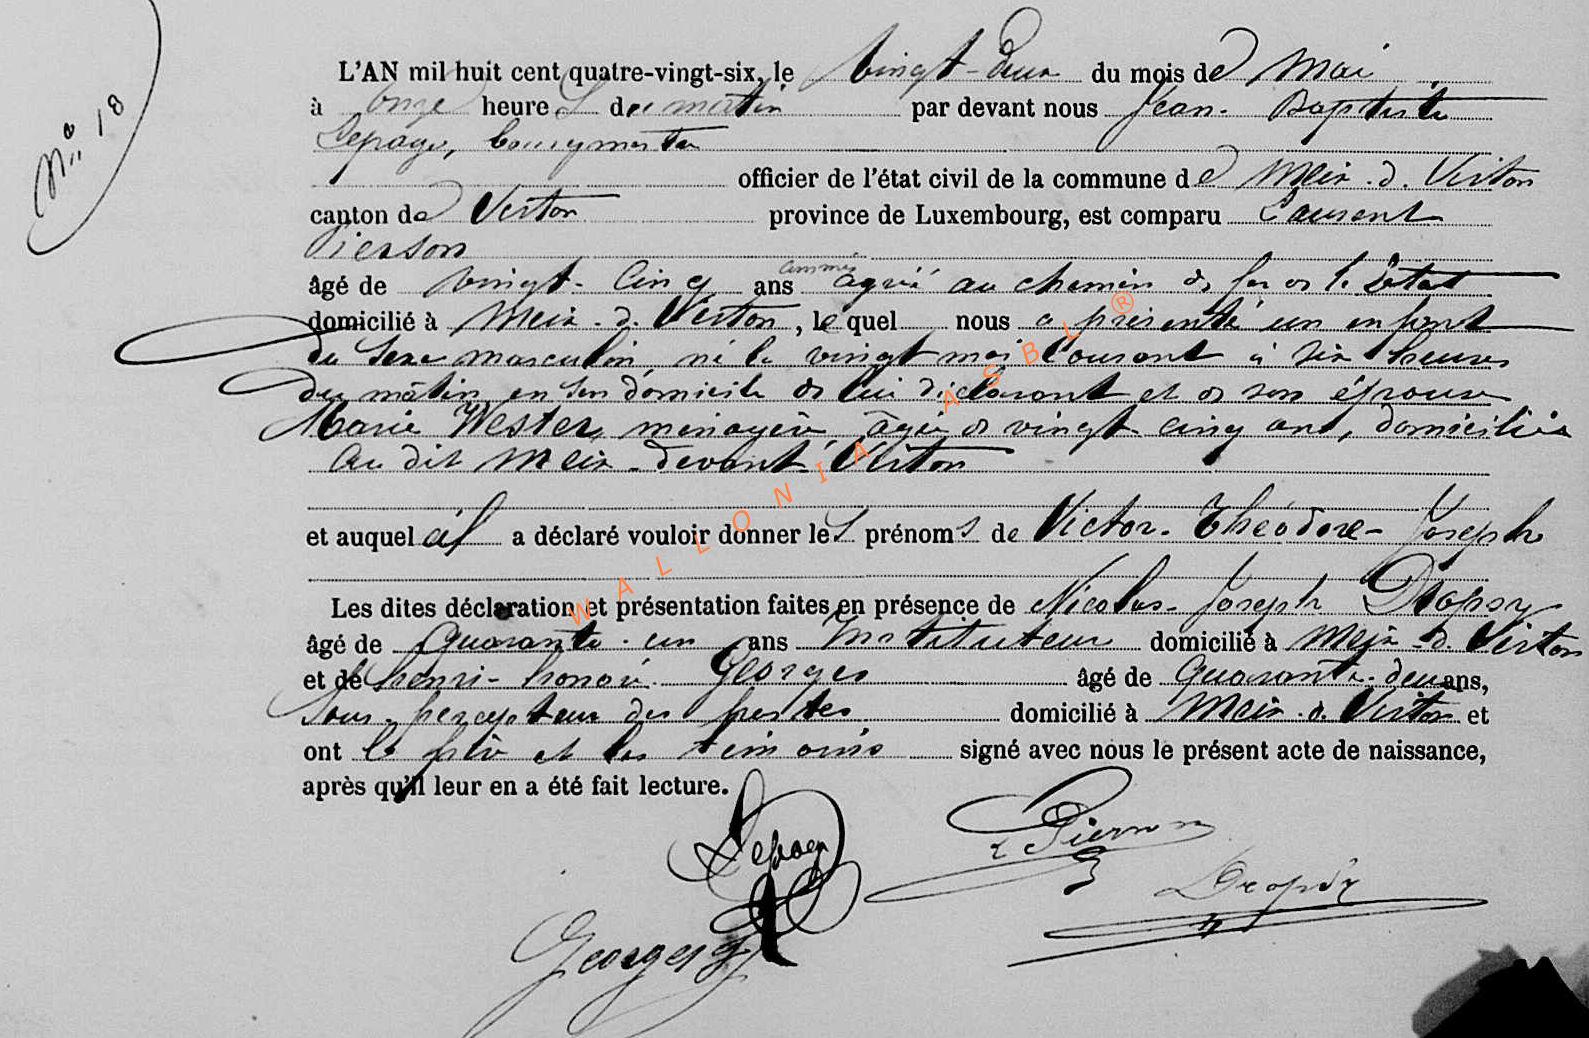 N° 18
L'AN mil huit cent quatre-vingt-six, le vingt-deux du mois de Mai
à onze heures du matin par devant nous Jean-Baptiste
Lepage, bourgmestre
officier de l'état civil de la commune de Meix-d. Virton
canton de Virton province de Luxembourg, est comparu Laurent
Pierson
âgé de vingt-cinq ans agréé au chemin de fer de l'état
domicilié à Meix-d. Virton, lequel nous a présenté un enfant
du sexe masculin né le vingt mai courant à six heures
du matin en son domicile de lui déclarant et de son épouse
Marie Wester, ménagère, âgée de vingt cinq ans, domiciliée
au dit Meix-devant-Virton
et auquel il a déclaré vouloir donner les prénoms de Victor-Théodore-Joseph
Les dites déclaration et présentation faites en présence de Nicolas-Joseph Dropsy
âgé de quarante-un ans Instituteur domicilié à Meix-d. Virton
et de henri-honoré Georges âgé de quarante-deux ans,
Sous-percepteur des postes domicilié à Meix-d. Virton et
ont le père et les témoins signé avec nous le présent acte de naissance,
après qu'il leur en a été fait lecture.
Lepage L Pierson
Dropsy
Georges
WALLONIA ASBL ®